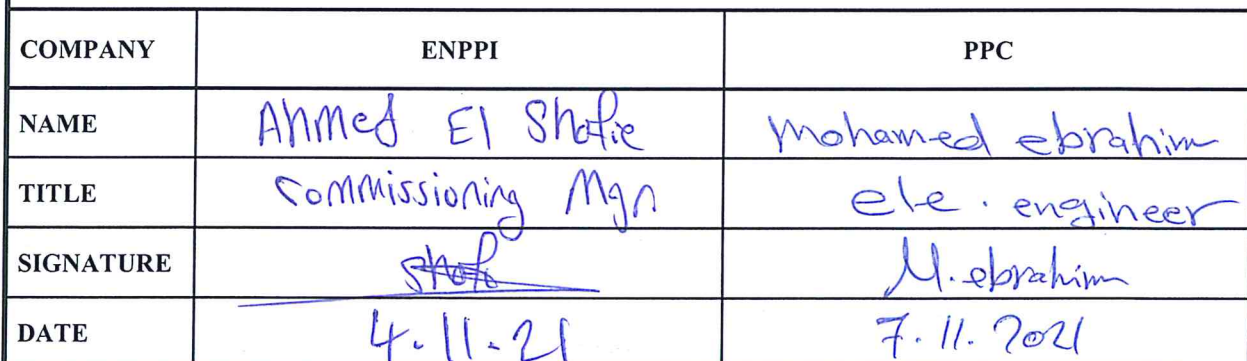 COMPANY ENPPI PPC
NAME Ahmed El Shafie Mohamed ebrahim
TITLE Commissioning Mgr ele. engineer
SIGNATURE Shafi M.ebrahim
DATE 4.11.21 7.11.2021